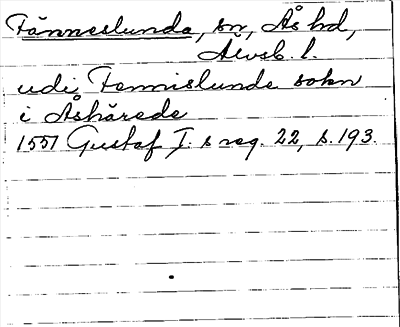 Fänneslunda, sn, Ås hd,
Älvsb. l.
udi Fennislunde sokn
i Åshärede
1551 Gustaf I:s reg. 22, s. 193.